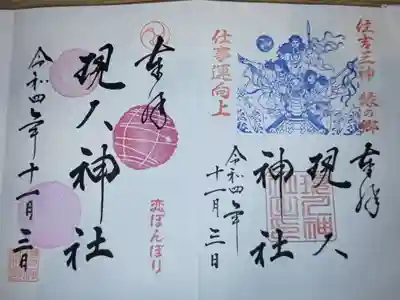 住吉三神 縁の郷
仕事運向上
奉拝
現人
神社
令和四年
十一月三日
奉拝
恋ぼんぼり
現人神社
令和四年十一月三日